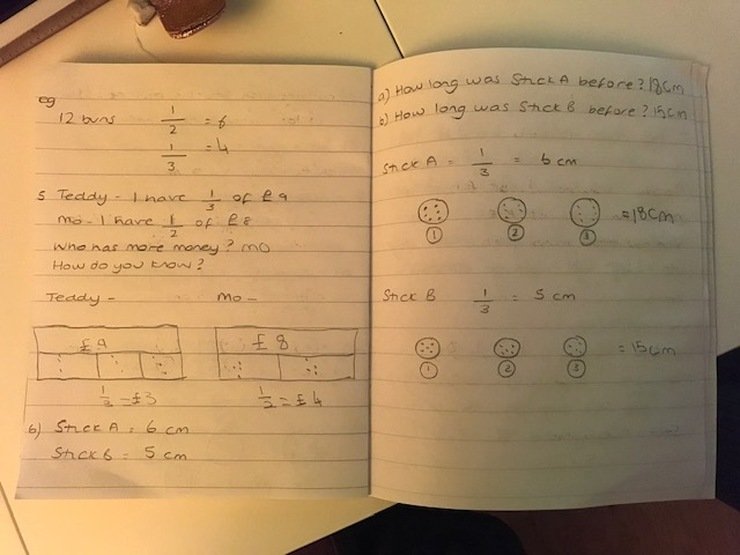 eg
12 buns 1/2 = 6
1/3 = 4
5 Teddy - I have 1/3 of £9
mo - I have 1/2 of £8
who has more money? mo
How do you know?
Teddy - mo -
£9 £8
= £3 1/2 = £4
6) Stick A = 6 cm
Stick B = 5 cm
a) How long was Stick A before? 18cm
b) How long was Stick B before? 15cm
Stick A = 1/3 = 6 cm
= 18cm
1 2 3
Stick B 1/3 = 5 cm
= 15cm
1 2 3